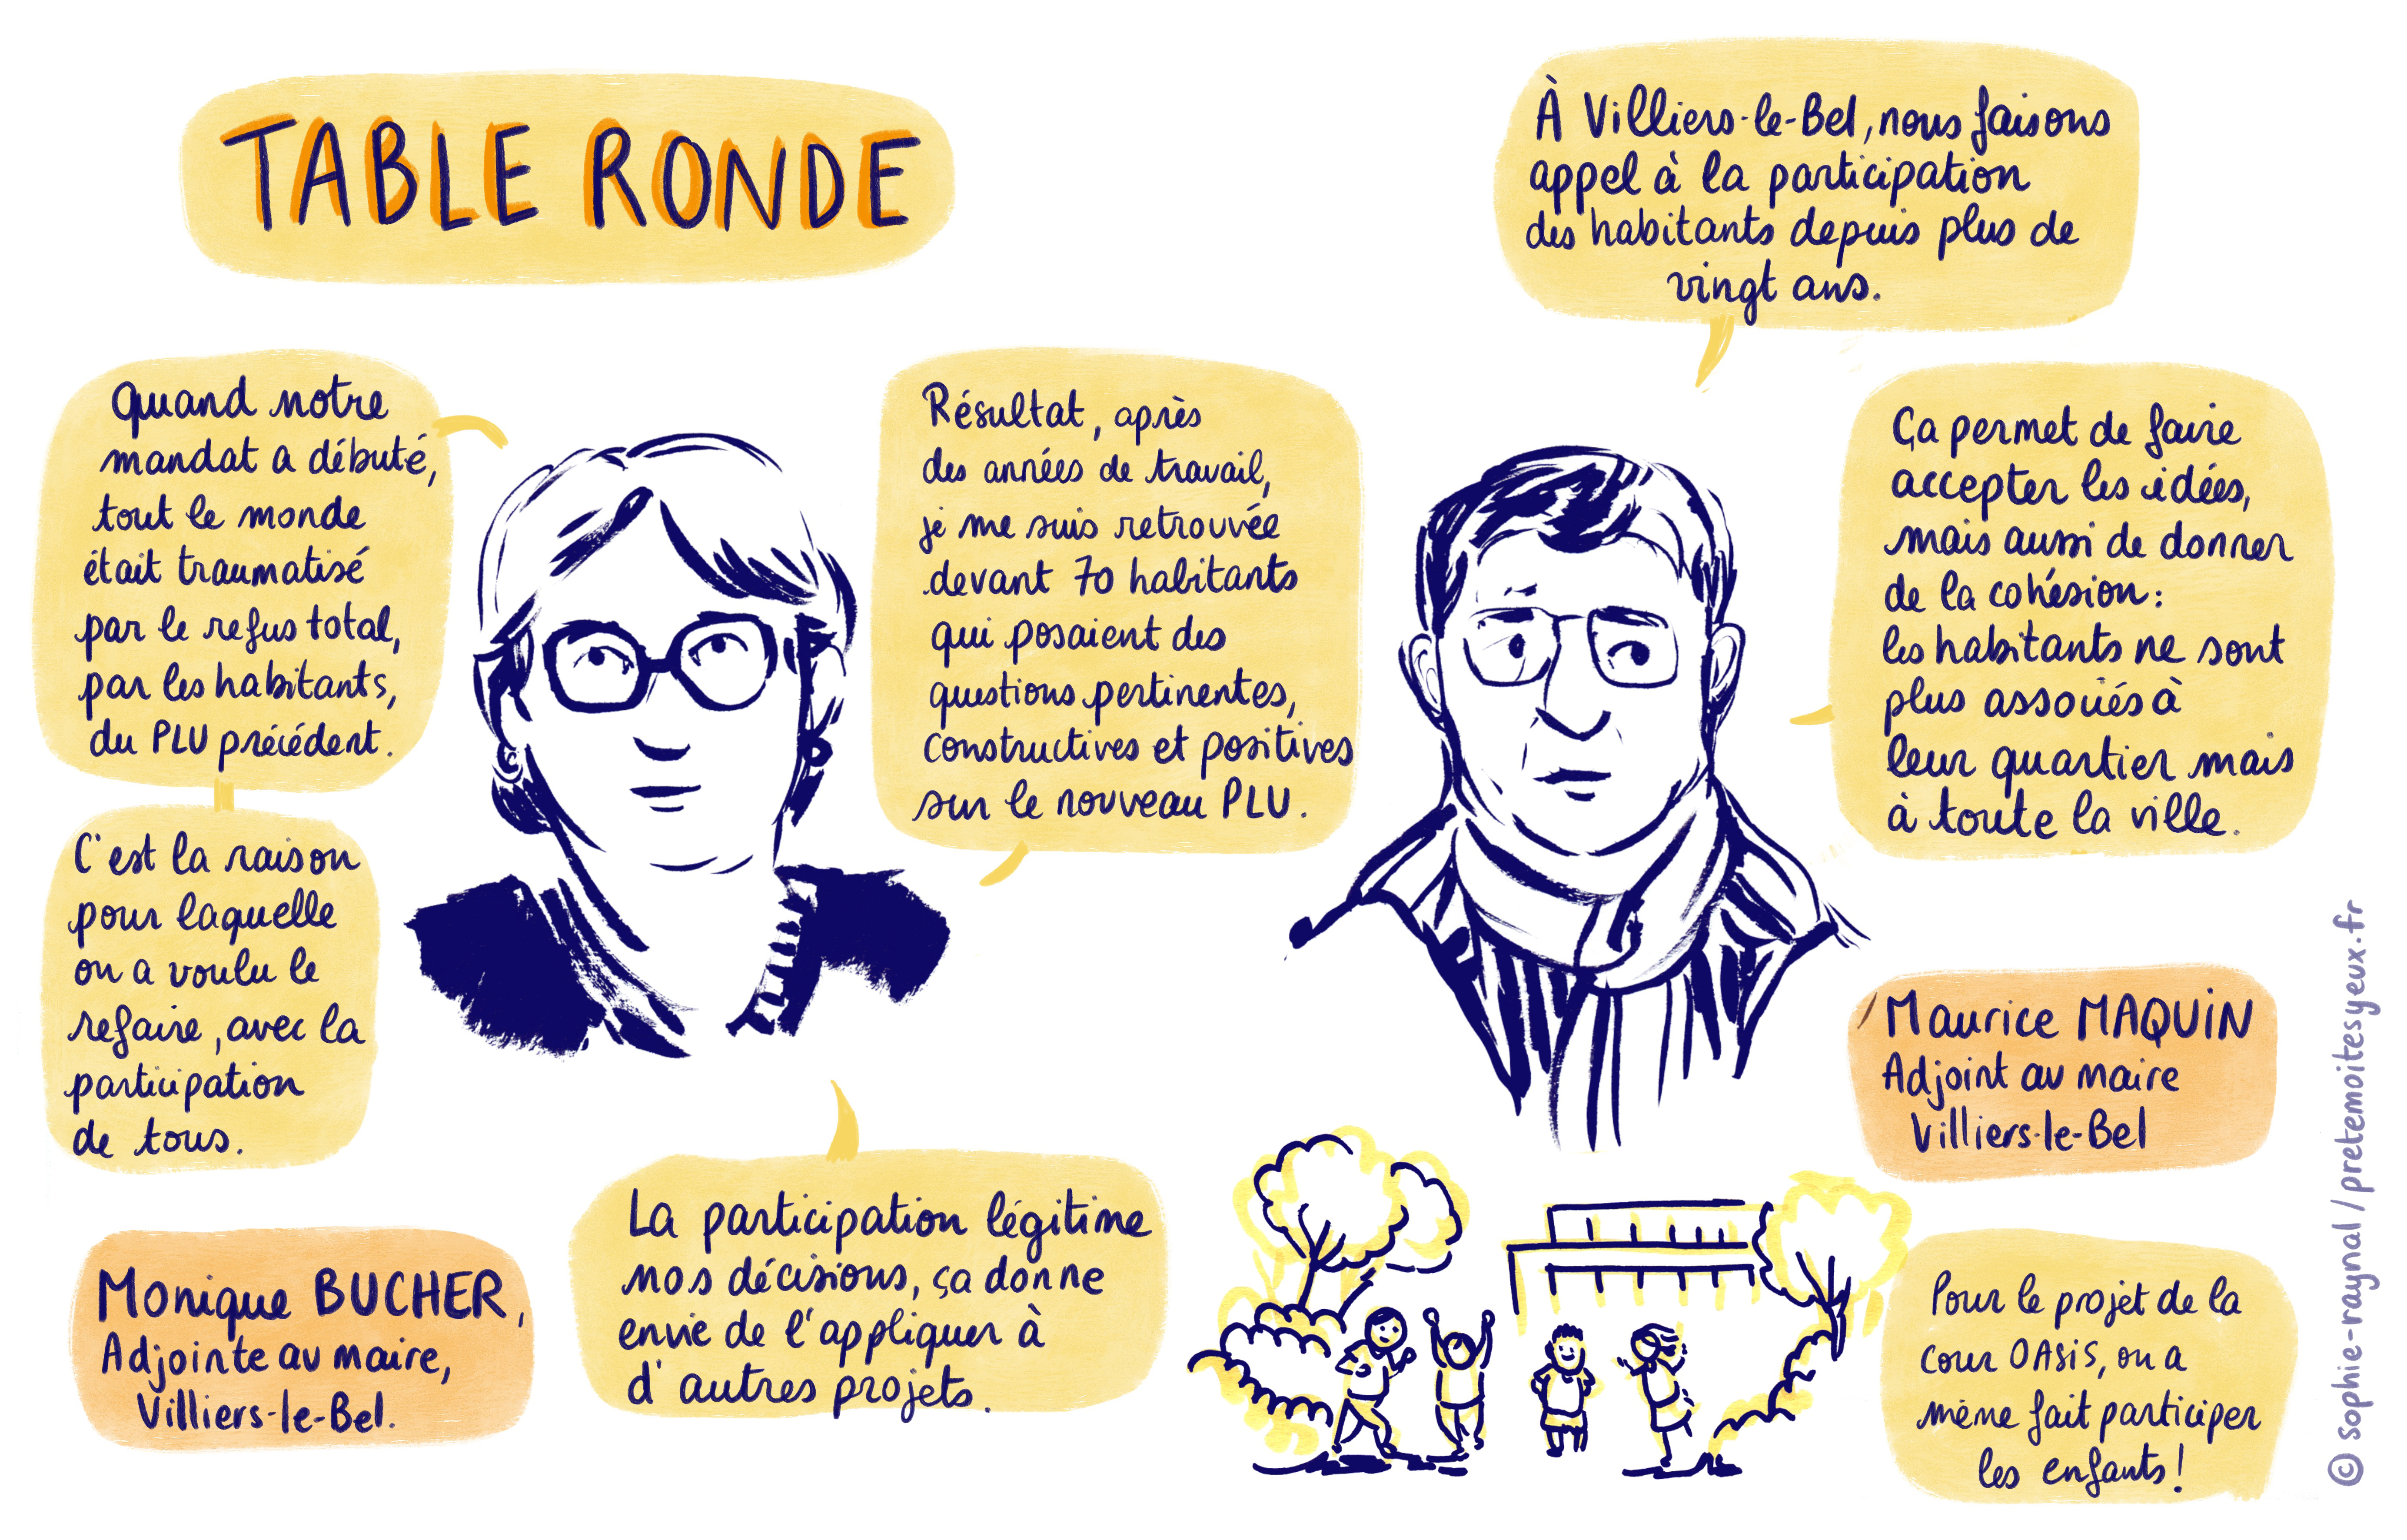 TABLE RONDE
Quand notre
mandat a débuté,
tout le monde
était traumatisé
par le refus total,
par les habitants,
du PLU précédent.
C'est la raison
pour laquelle
on a voulu le
refaire, avec la
participation
de tous.
Monique BUCHER,
Adjointe au maire,
Villiers-le-Bel.
Résultat, après
des années de travail,
je me suis retrouvée
devant 70 habitants
qui posaient des
questions pertinentes,
constructives et positives
sur le nouveau PLU.
La participation légitime
nos décisions, ça donne
envie de l'appliquer à
d'autres projets.
À Villiers-le-Bel, nous faisons
appel à la participation
des habitants depuis plus de
vingt ans.
Ça permet de faire
accepter les idées,
mais aussi de donner
de la cohésion :
les habitants ne sont
plus associés à
leur quartier mais
à toute la ville.
Maurice MAQUIN
Adjoint au maire
Villiers-le-Bel
Pour le projet de la
cour OASIS, on a
même fait participer
les enfants !
© sophie-raynal / pretemoitesyeux.fr